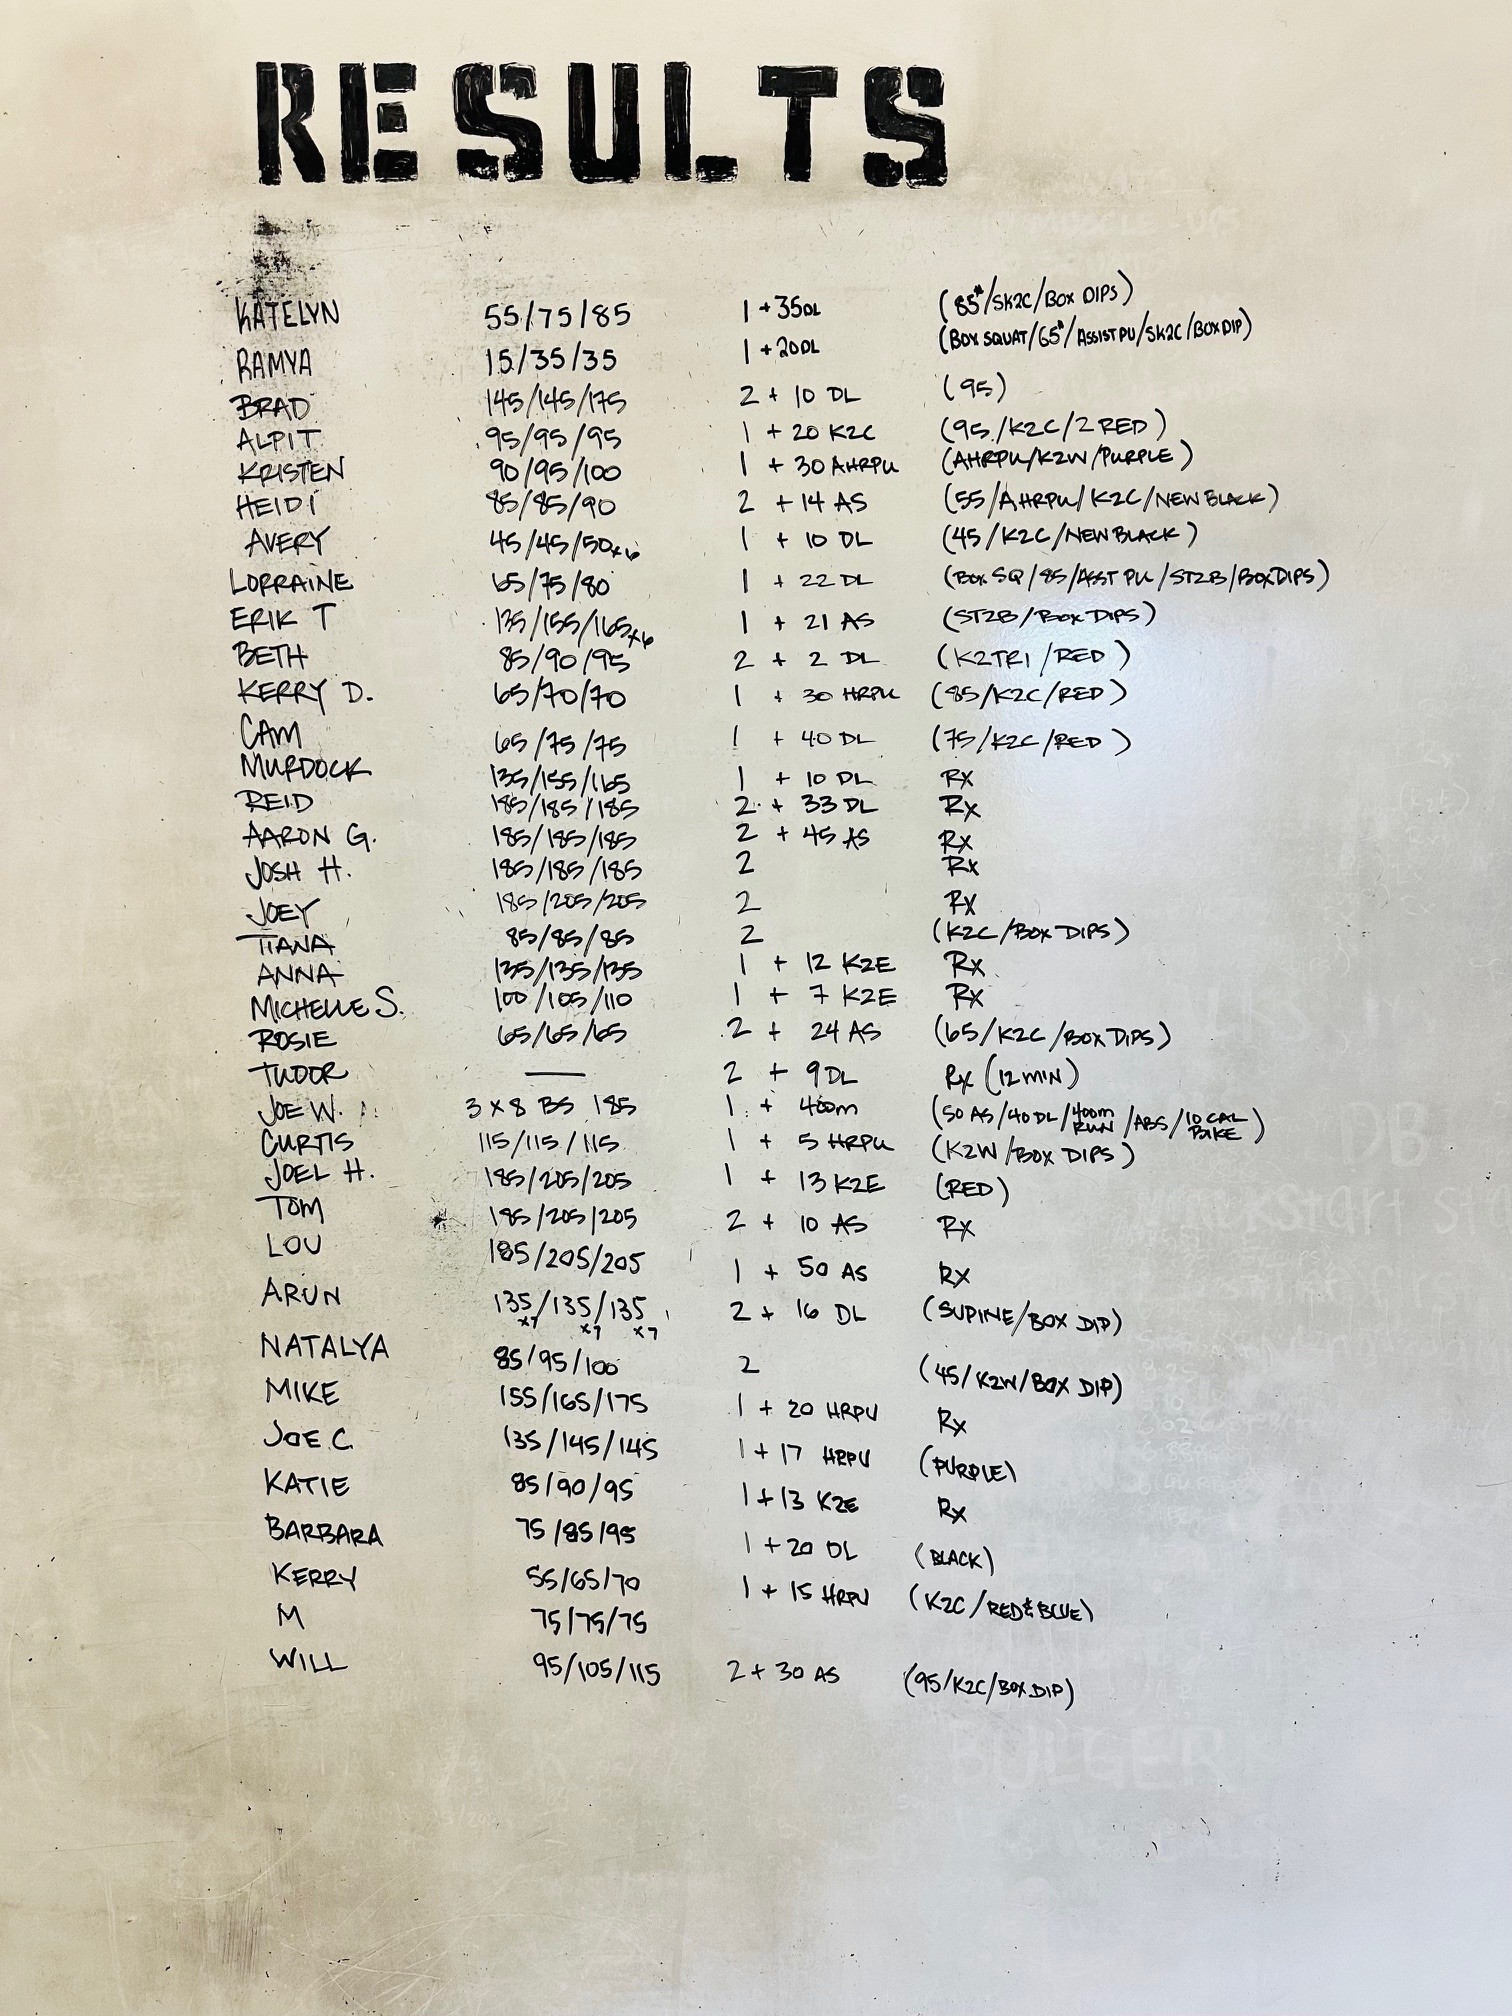 RESULTS
KATELYN 55/75/85 1+35DL (85#/SK2C/BOX DIPS)
RAMYA 15/35/35 1+20DL (BOX SQUAT/65#/ASSIST PU/SK2C/BOX DIP)
BRAD 145/145/175 2 + 10 DL (95)
ALPIT 95/95/95 1 + 20 K2C (95/K2C/2 RED)
KRISTEN 90/95/100 1 + 30 AHRPU (AHRPU/K2W/PURPLE)
HEIDI 85/85/90 2 + 14 AS (55/AHRPU/K2C/NEW BLACK)
AVERY 45/45/50x6 1 + 10 DL (45/K2C/NEW BLACK)
LORRAINE 65/75/80 1 + 22 DL (BOX SQ/85/ASST PU/ST2B/BOX DIPS)
ERIK T 135/155/165x6 1 + 21 AS (ST2B/BOX DIPS)
BETH 85/90/95 2 + 2 DL (K2TRI/RED)
KERRY D. 65/70/70 1 + 30 HRPU (85/K2C/RED)
CAM 65/75/75 1 + 40 DL (75/K2C/RED)
MURDOCK 135/155/165 1 + 10 DL Rx
REID 185/185/185 2 + 33 DL Rx
AARON G. 185/185/185 2 + 45 AS Rx
JOSH H. 185/185/185 2 Rx
JOEY 185/205/205 2 Rx
TIANA 85/85/85 2 (K2C/BOX DIPS)
ANNA 135/135/135 1 + 12 K2E Rx
MICHELLE S. 100/105/110 1 + 7 K2E Rx
ROSIE 65/65/65 2 + 24 AS (65/K2C/BOX DIPS)
TUDOR — 2 + 9 DL Rx (12 MIN)
JOE W. 3 x 8 BS 185 1 + 400m (50 AS/40 DL/400m RUN/ABS/10 CAL BIKE)
CURTIS 115/115/115 1 + 5 HRPU (K2W/BOX DIPS)
JOEL H. 185/205/205 1 + 13 K2E (RED)
TOM 185/205/205 2 + 10 AS Rx
LOU 185/205/205 1 + 50 AS Rx
ARUN 135x7/135x7/135x7 2 + 16 DL (SUPINE/BOX DIP)
NATALYA 85/95/100 2 (45/K2W/BOX DIP)
MIKE 155/165/175 1 + 20 HRPU Rx
JOE C. 135/145/145 1+17 HRPU (PURPLE)
KATIE 85/90/95 1+13 K2E Rx
BARBARA 75/85/95 1+20 DL (BLACK)
KERRY 55/65/70 1 + 15 HRPU (K2C/RED&BLUE)
M 75/75/75
WILL 95/105/115 2+30 AS (95/K2C/BOX DIP)
BULGER
DB